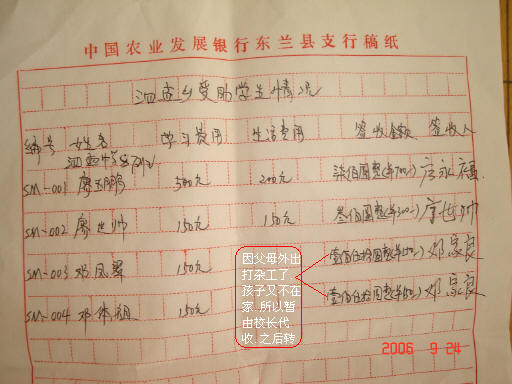 中国农业发展银行东兰县支行稿纸
泗孟乡受助学生情况
编号 姓名 学习费用 生活费用 签收金额 签收人
泗孟
SM-001 廖玉鹏 500元 200元 柒佰圆整(¥700.-) 廖永福
SM-002 廖世帅 150元 150元 叁佰圆整(¥300.-) 廖世帅
SM-003 邓凤翠 150元 壹佰伍拾圆整(¥150.-) 邓家良
SM-004 邓 祖 150元 壹佰伍拾圆整(¥150.-) 邓家良
因父母外出
打杂工了.
孩子又不在
家.所以暂
由校长代
收.之后转
2006 9 24